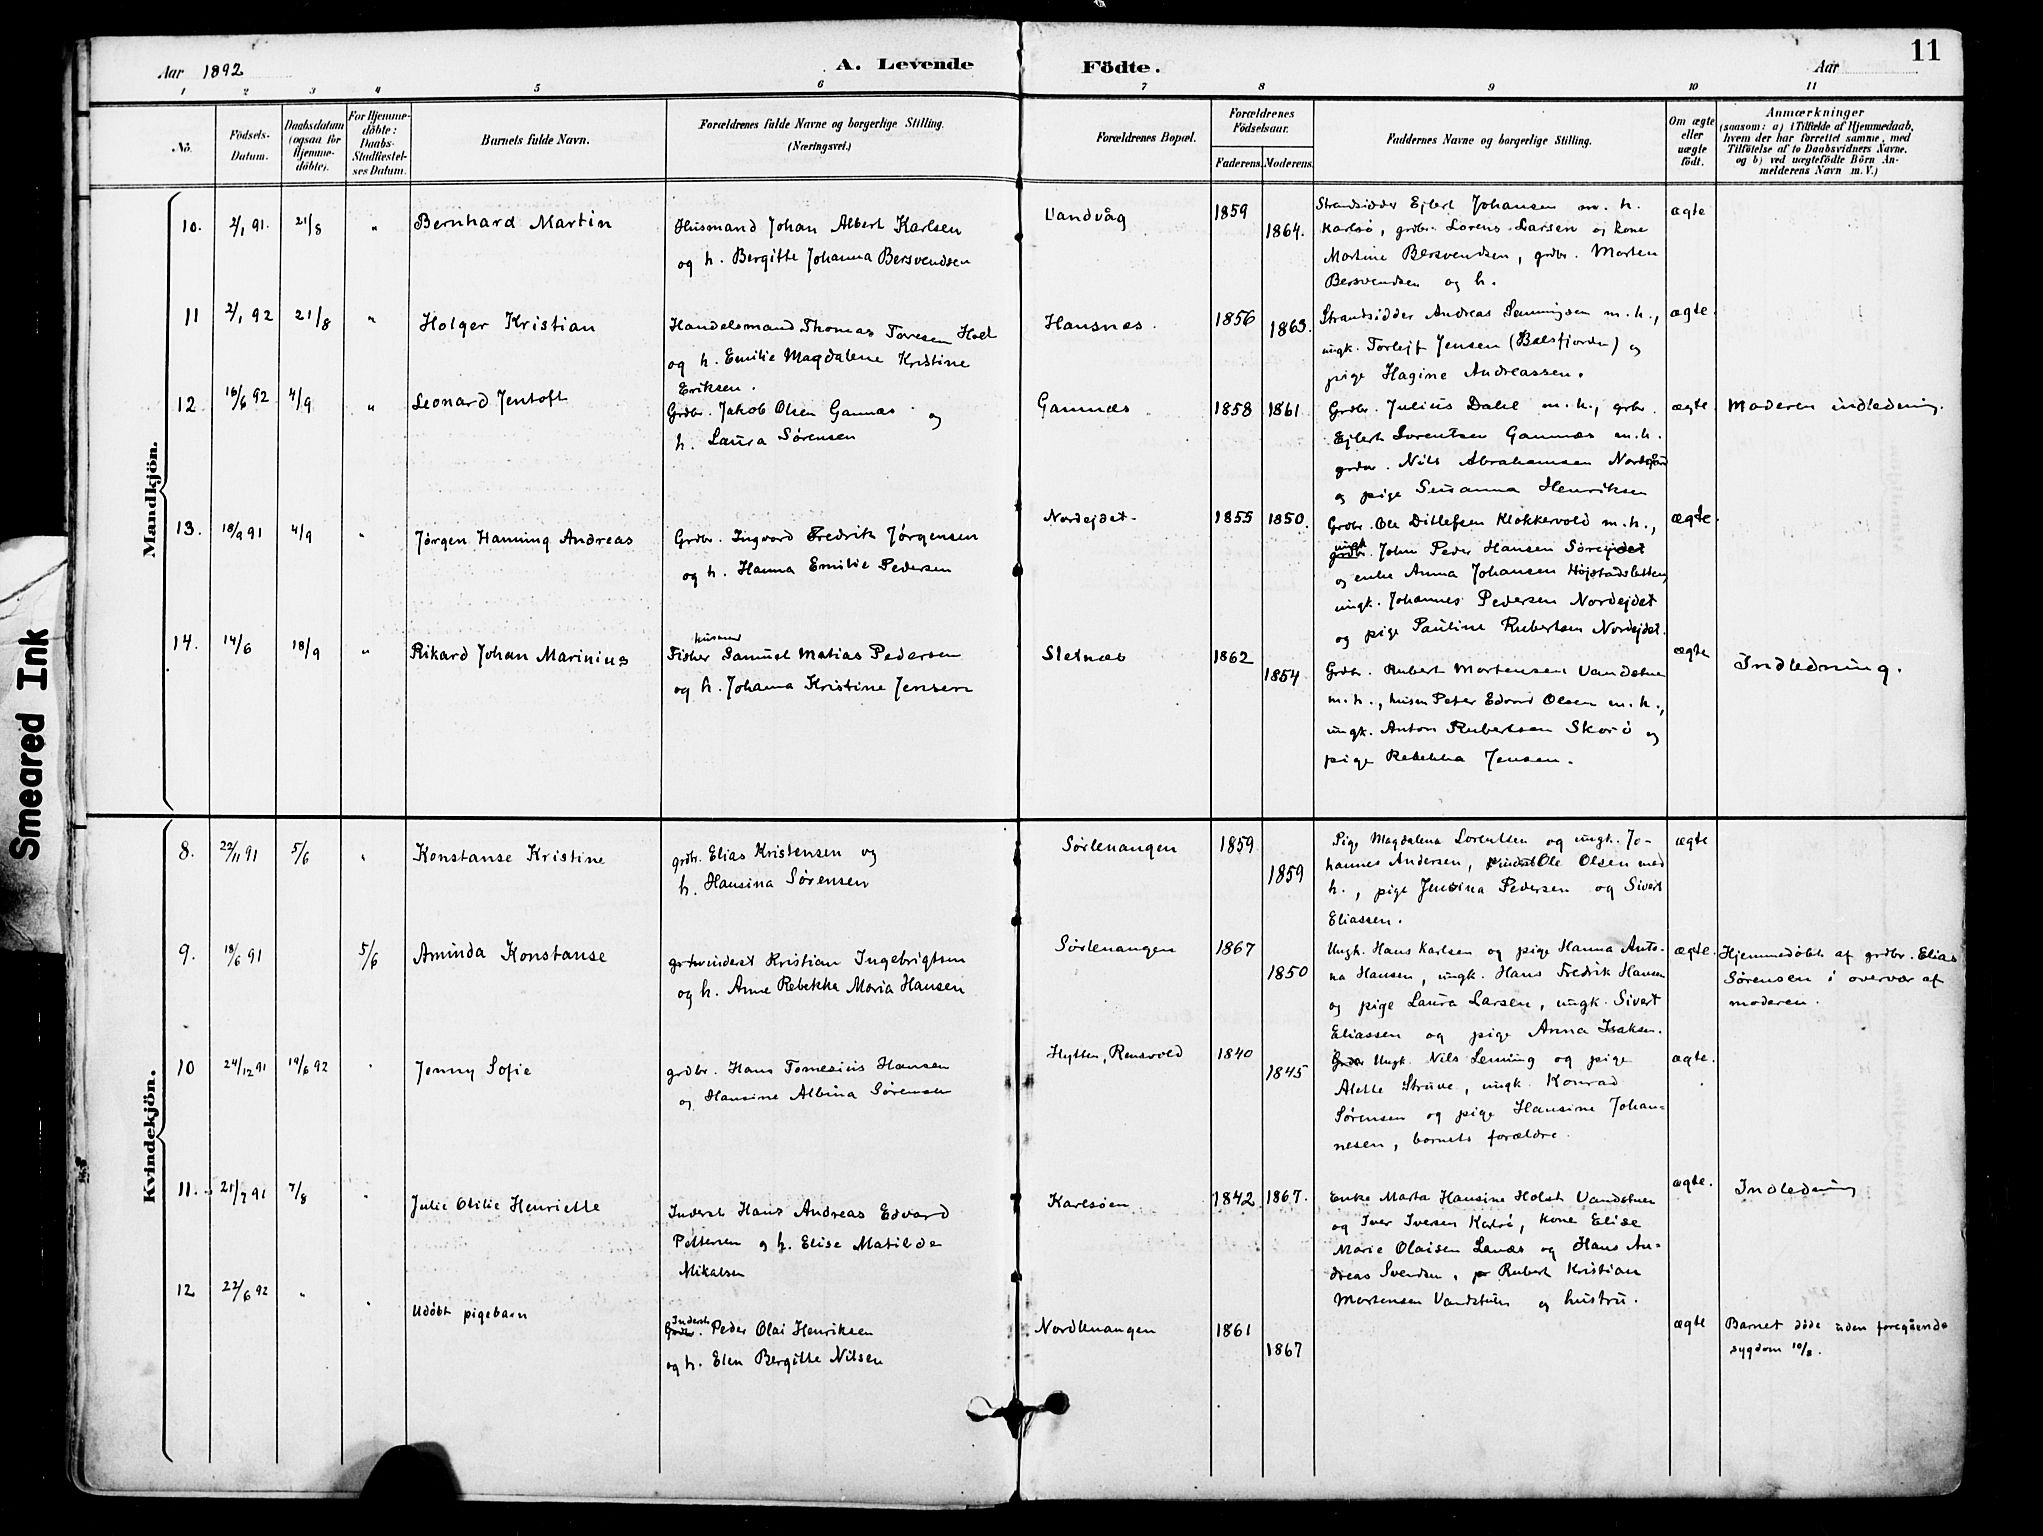 Aar 1892
A. Levende Födte.
Aar
11
1 2 3 4 5 6 7 8 9 10 11
No.
Födsels-
Datum.
Daabsdatum
(ogsaa for
Hjemme-
døbte).
For Hjemme-
døbte:
Daabs-
Stadfæstel-
ses Datum.
Barnets fulde Navn.
Forældrenes fulde Navne og borgerlige Stilling.
(Næringsvei.)
Forældrenes Bopæl.
Forældrenes
Födselsaar.
Faderens. Moderens.
Faddernes Navne og borgerlige Stilling.
Om ægte
eller
uægte
födt.
Anmærkninger
(saasom: a) i Tilfælde af Hjemmedaab,
hvem der har forrettet samme, med
Tilföielse af to Daabsvidners Navne,
og b) ved uægtefödte Börn An-
melderens Navn m. V.)
Mandkjön.
10. 2/1 91. 21/8 " Bernhard Martin
Husmand Johan Albert Karlsen
og h. Bergitte Johanna Bersvendsen
Vandvåg 1859 1864.
Strandsidder Ejlert Johansen m. h.
Karlsø, grdbr. Lorens Larsen og kone
Martine Bersvendsen, grdbr. Morten
Bersvendsen og h.
ægte
11 2/1 92 21/8 " Holger Kristian
Handelsmand Thomas Toresen Holt
og h. Emilie Magdalene Kristine
Eriksen.
Hansnæs. 1856 1863.
Strandsidder Andreas Henningsen m. h.,
ungk. Torlejf Jensen (Balsfjorden) og
pige Hagine Andreassen.
ægte.
12 16/6 92 4/9 " Leonard Jentoft
Grdbr. Jakob Olsen Gamnæs og
h. Laura Sørensen
Gamnæs 1858 1861.
Grdbr. Julius Dahl m. h., grbr.
Ejlert Lorentsen Gamnæs m. h.
grdbr. Nils Abrahamsen Nordgård
og pige Susanna Henriksen
ægte. Moderen indledning.
13. 18/9 91 4/9 " Jørgen Hanning Andreas
Grdbr. Ingvard Fredrik Jørgensen
og h. Hanna Emilie Pedersen
Nordejdet. 1855 1850.
Grdbr. Ole Ditlefsen Klokkervold m. h.,
ungk. John Peder Hansen Sørejdet
og enke Anna Johansen Højstadsletten,
ungk. Johannes Pedersen Nordejdet
og pige Pauline Rubertsen Nordejdet.
ægte.
14. 14/6 18/9 " Rikard Johan Marinius
husmd
Fisker Samuel Matias Pedersen
og h. Johanna Kristine Jensen
Sletnæs 1862 1854
Grdbr. Rubert Mortensen Vandstuen
m. h., husm Peter Edvard Olsen m. h.,
ungk. Anton Rubertsen Skorö og
pige Rebekka Jensen.
ægte Indledning.
Kvindekjön.
8. 22/11 91 5/6 " Konstanse Kristine
grdbr. Elias Kristensen og
h. Hansina Sørensen
Sørlenangen 1859 1859
Pige Magdalena Lorentsen og ungk. Jo-
hannes Andersen, Ole Olsen med
h., pige Jensina Pedersen og Sivert
Eliassen.
ægte
9. 18/6 91 5/6 Aminda Konstanse
inderst Kristian Ingebrigtsen
og h. Anne Rebekka Maria Hansen
Sørlenangen 1867 1850
Ungk. Hans Karlsen og pige Hanna Anto-
na Hansen, ungk. Hans Fredrik Hansen
og pige Laura Larsen, ungk. Sivert
Eliassen og pige Anna Isaksen.
ægte. Hjemmedøbt af grdbr. Elias
Sørensen i overvær af
moderen.
10 24/12 91 19/6 92 " Jenny Sofie
grdbr. Hans Tomesius Hansen
og Hansine Albina Sørensen
Hytten, Rensvold 1840 1845
Ungk. Nils Lening og pige
Alette Struve, ungk. Konrad
Sørensen og pige Hansine Johan-
nesen, barnets forældre.
ægte.
11. 21/7 91 7/8 " Julie Otilie Henriette
Inderst Hans Andreas Edvard
Pettersen og h. Elise Matilde
Mikalsen
Karlsøen 1842 1867.
Enke Marta Hansine Holst Vandstuen
og Iver Iversen Karlsö, kone Elise
Marie Olaisen Lanæs og Hans An-
dreas Svendsen, Rubert Kristian
Mortensen Vandstuen og hustru.
ægte. Indledning
12 22/6 92 " " Udöbt pigebarn
Inderst
Grdbr. Peder Olai Henriksen
og h. Elen Bergitte Nilsen
Nordlenangen 1861 1867
ægte Barnet døde uden foregående
sygdom 10/8.
Smeared Ink